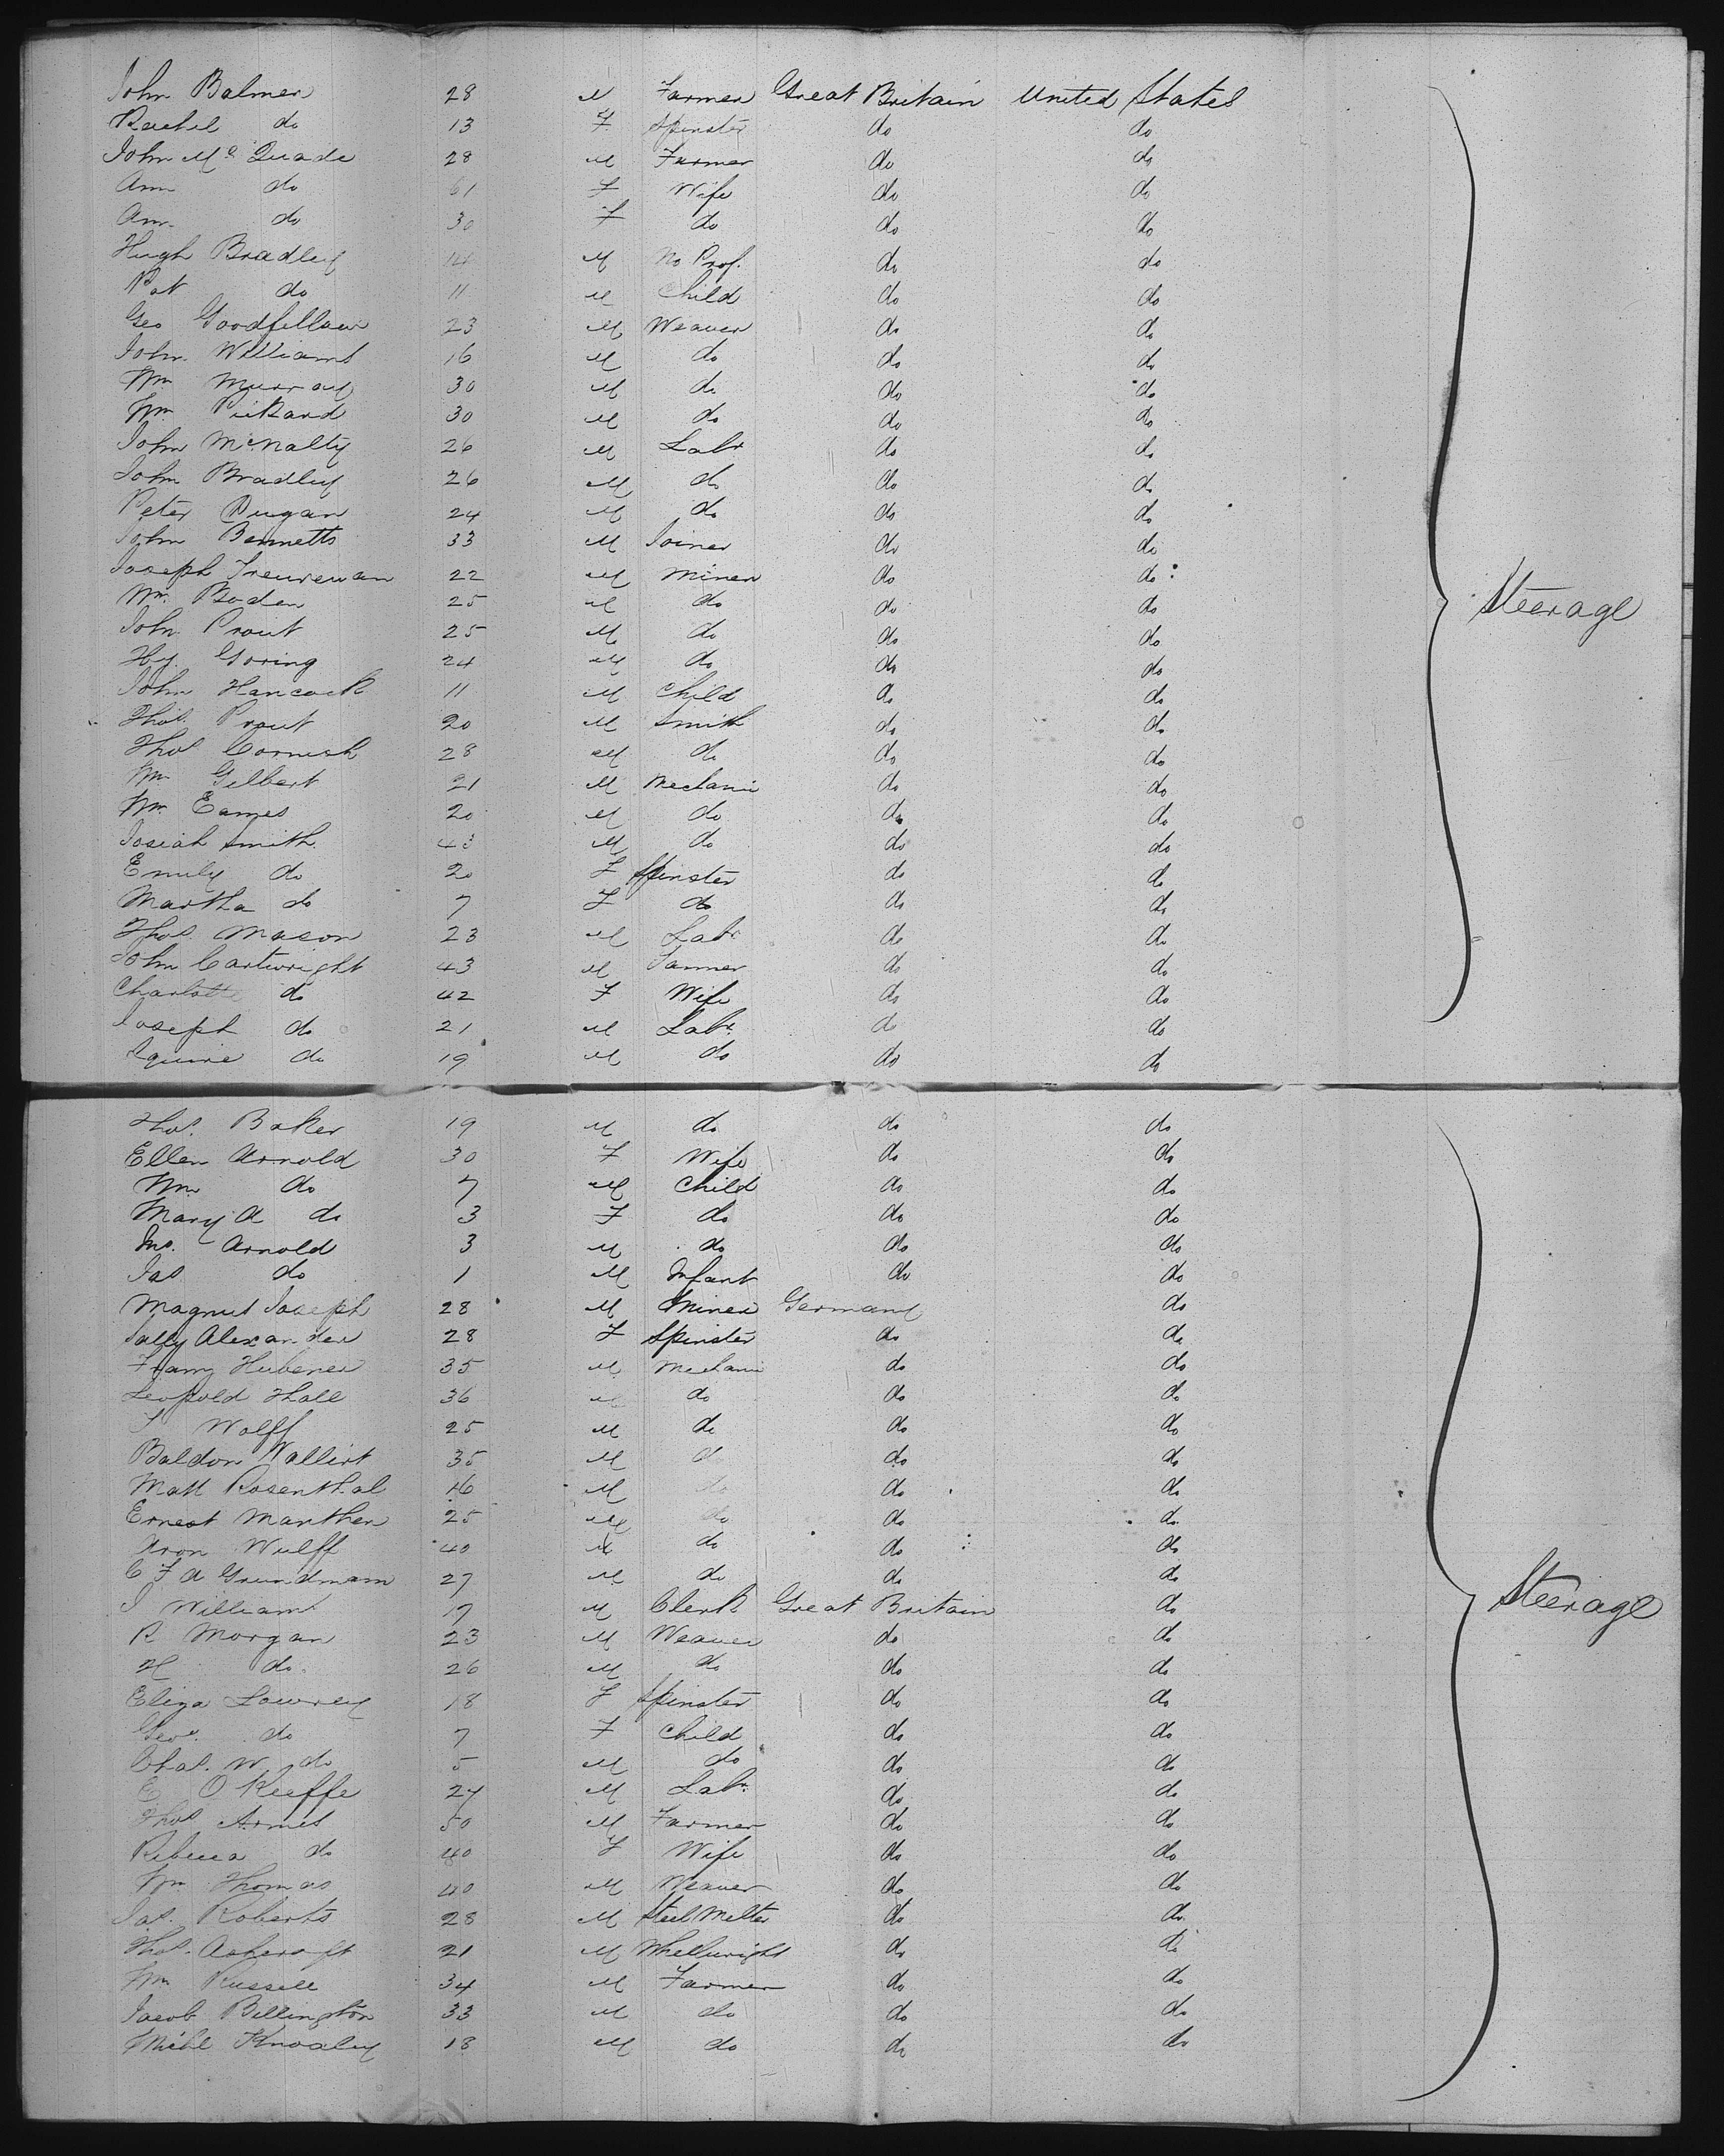 John Balmer 28 M Farmer Great Britain United States
Rachel do 13 F Spinster do do
John Mc Quade 28 M Farmer do do
Ann do 61 F Wife do do
Ann do 30 F do do do
Hugh Bradley 14 M No Prof. do do
Pat do 11 M Child do do
Geo Goodfellow 23 M Weaver do do
John Williams 16 M do do do
Wm Murray 30 M do do do
Wm Pickard 30 M do do do
John McNalty 26 M Labr do do
John Bradley 26 M do do do
Peter Dugan 24 M do do do
John Bennetts 33 M Joiner do do
Joseph Treurewan 22 M Miner do do
Wm Boden 25 M do do do
John Prout 25 M do do do
Steerage
Hy. Goring 24 M do do do
John Hancock 11 M Child do do
Thos. Prout 20 M Smith do do
Thos Cornish 28 M do do do
Wm Gilbert 21 M Mechanic do do
Wm Eames 20 M do do do
Josiah Smith 43 M do do do
Emily do 20 F Spinster do do
Martha do 7 F do do do
Thos. Mason 23 M Labr do do
John Cartwright 43 M Farmer do do
Charlotte do 42 F Wife do do
Joseph do 21 M Labr. do do
Squire do 19 M do do do
Thos. Baker 19 M do do do
Ellen Arnold 30 F Wife do do
Wm do 7 M Child do do
Mary A do 3 F do do do
Jno. Arnold 3 M do do do
Jas do 1 M Infant do do
Magnus Joseph 28 M Miner Germany do
Sally Alexander 28 F Spinster do do
Franz Hubener 35 M Mechanic do do
Leopold Hall 36 M do do do
Wolff 25 M do do do
Baldon Wallist 35 M do do do
Matt Rosenthal 16 M do do do
Ernest Manthen 25 M do do do
Aron Wulff 40 M do do do
C F A Grundmann 27 M do do do
J Williams 17 M Clerk Great Britain do
Steerage
R Morgan 23 M Weaver do do
H do 26 M do do do
Eliza Lowrey 18 F Spinster do do
Geo. do 7 F Child do do
Chas. W do 5 M do do do
C O Keeffe 27 M Labr. do do
Thos Armes 50 M Farmer do do
Rebecca do 40 F Wife do do
Wm Thomas 40 M Weaver do do
Jas. Roberts 28 M Steel Melter do do
Thos. Ashcroft 21 M Whellwright do do
Wm Russell 34 M Farmer do do
Jacob Billington 33 M do do do
Michl Knoxley 18 M do do do